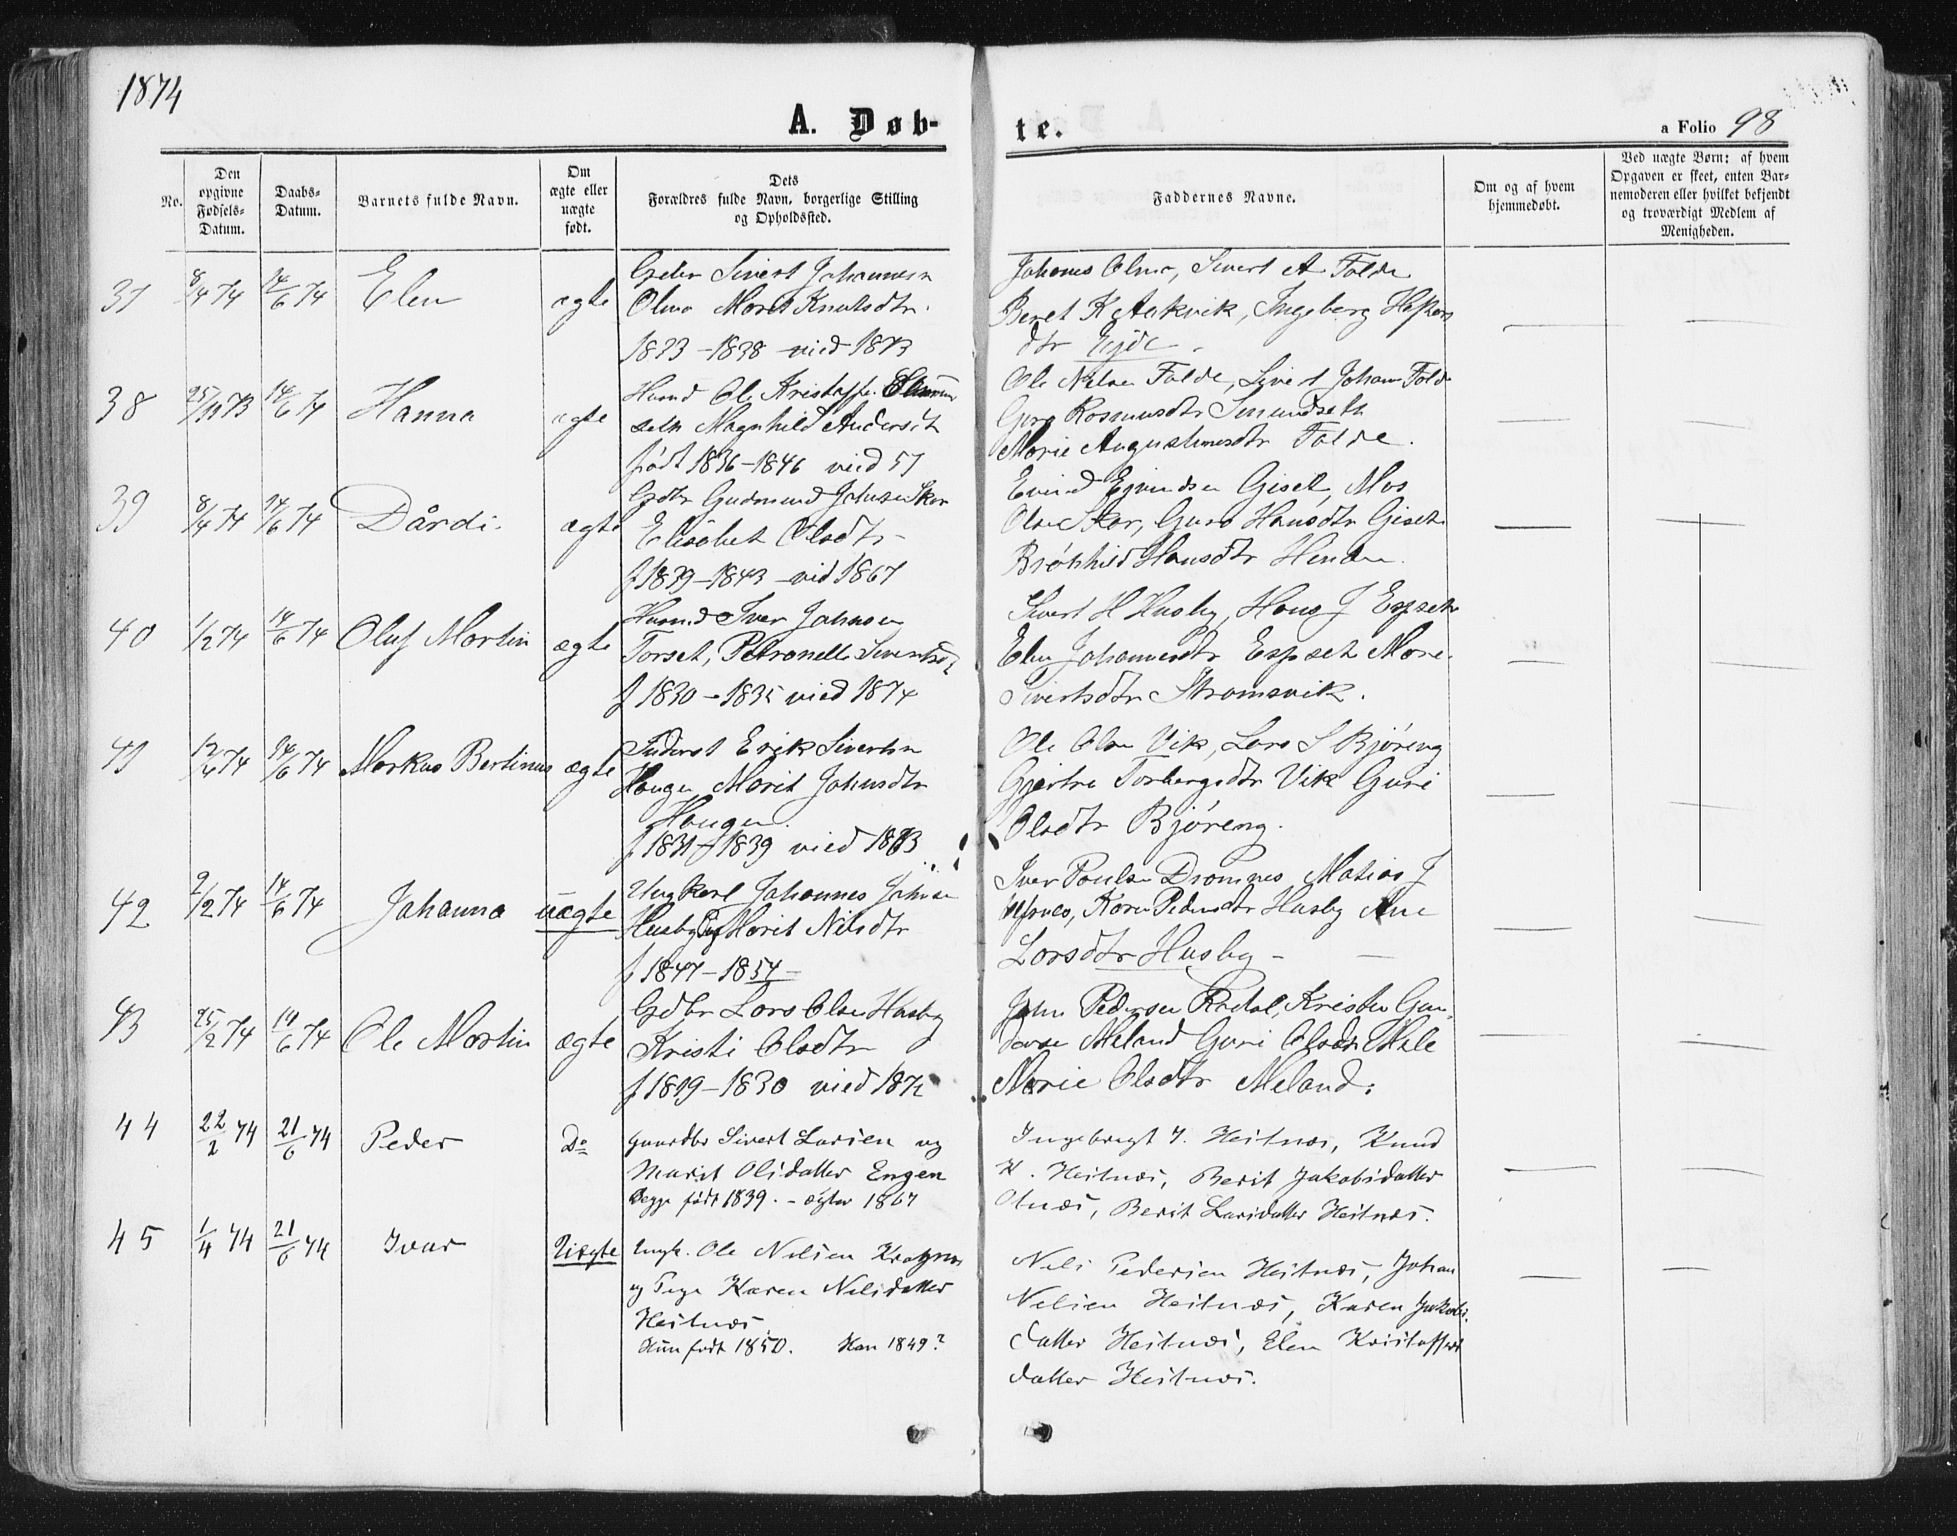 1874
A. Døb-
te.
a Folio 98
No.
Den opgivne Fødsels-Datum.
Daabs-Datum.
Barnets fulde Navn.
Om ægte eller uægte født.
Dets Forældres fulde Navn, borgerlige Stilling og Opholdssted.
Faddernes Navne.
Om og af hvem hjemmedøbt.
Ved uægte Børn: af hvem Opgaven er skeet, enten Barnemoderen eller hvilket bekjendt og troværdigt Medlem af Menigheden.
37 8/4 74 14/6 74 Elen ægte
Sivert Johannesen
Marit Knutsdtr.
1838 vied 1873
Sivert A Folde
Beret K Aakvik, Ingeborg
dtr
38 25/11 73 14/6 74 Hanna ægte
Husmd Ole Kristoffer
Magnhild Andersdt
født 1836-1846 vied 57
Ole Nilsen Folde, Sivert Johans Folde
Rasmusdtr Smundseth
Marie Augustinusdtr Folde.
39 8/4 74 14/6 74 Dårdi. ægte
Gdbr Gudmund Johnsen Skar
Elisabet Olsdtr
f 1839-1843 vid 1867
Eivind Eivindsen Giset, Mos
Olsen Skar, Guro Hansdtr Giset
Brønhild Hansdtr Henden.
40 1/2 74 14/6 74 Oluf Martin ægte
Husmd Iver Johnsen
Torset, Petronelle Sivertsdt
f 1830-1835 vied 1874
Sivert H Husby, Hans J Espset
Elen Johannesdtr Espset Mare
Sivertsdtr Strømsvik.
41 12/4 74 14/6 74 Markus Bertinus ægte
Inderst Erik Sivertsen
Haugen Marit Johnsdtr
Haugen.
f 1831-1839 vied 1863
Ole Olsen Vik, Lars S Bjøreng
Gjertru Torbergsdtr Vik Guri
Olsdtr Bjøreng.
42 2/2 74 14/6 74 Johanna uægte
Ungkarl Johannes Johnsen
Husby Pig Marit Nilsdtr
f 1847-1854
Iver Poulsen Drømnes Matias J
Ulfsnes, Karen Pedersdtr Husby Ane
Larsdtr Husby
43 25/2 74 14/6 74 Ole Martin ægte
Gdbr Lars Olsen Husby
Kristi Olsdtr
f 1819-1830 vied
John Pedersen Rødal, Kristen Gun-
Meland Guri Olsdtr Hale
Marie Olsdtr Meland.
44 22/2 74 21/6 74 Peder Do
Gaardbr Sivert Larsen og
Marit Olsdatter Engen
Begge født 1839. - ægtev 1867
Ingebrigt I. Heitnæs, Knud
H. Heitnæs, Berit Jakobsdatter
Olnæs, Berit Larsdatter Heitnæs.
45 1/4 74 21/6 74 Ivar Uægte
Ungk. Ole Nilsen
og Pige Karen Nilsdatter
Heitnæs
Hun født 1850. Han 1849?
Nils Pedersen Heitnæs, Johan
Nilsen Heitnæs, Karen Jakobs-
datter Heitnæs, Elen Kristoffers
datter Heitnæs.